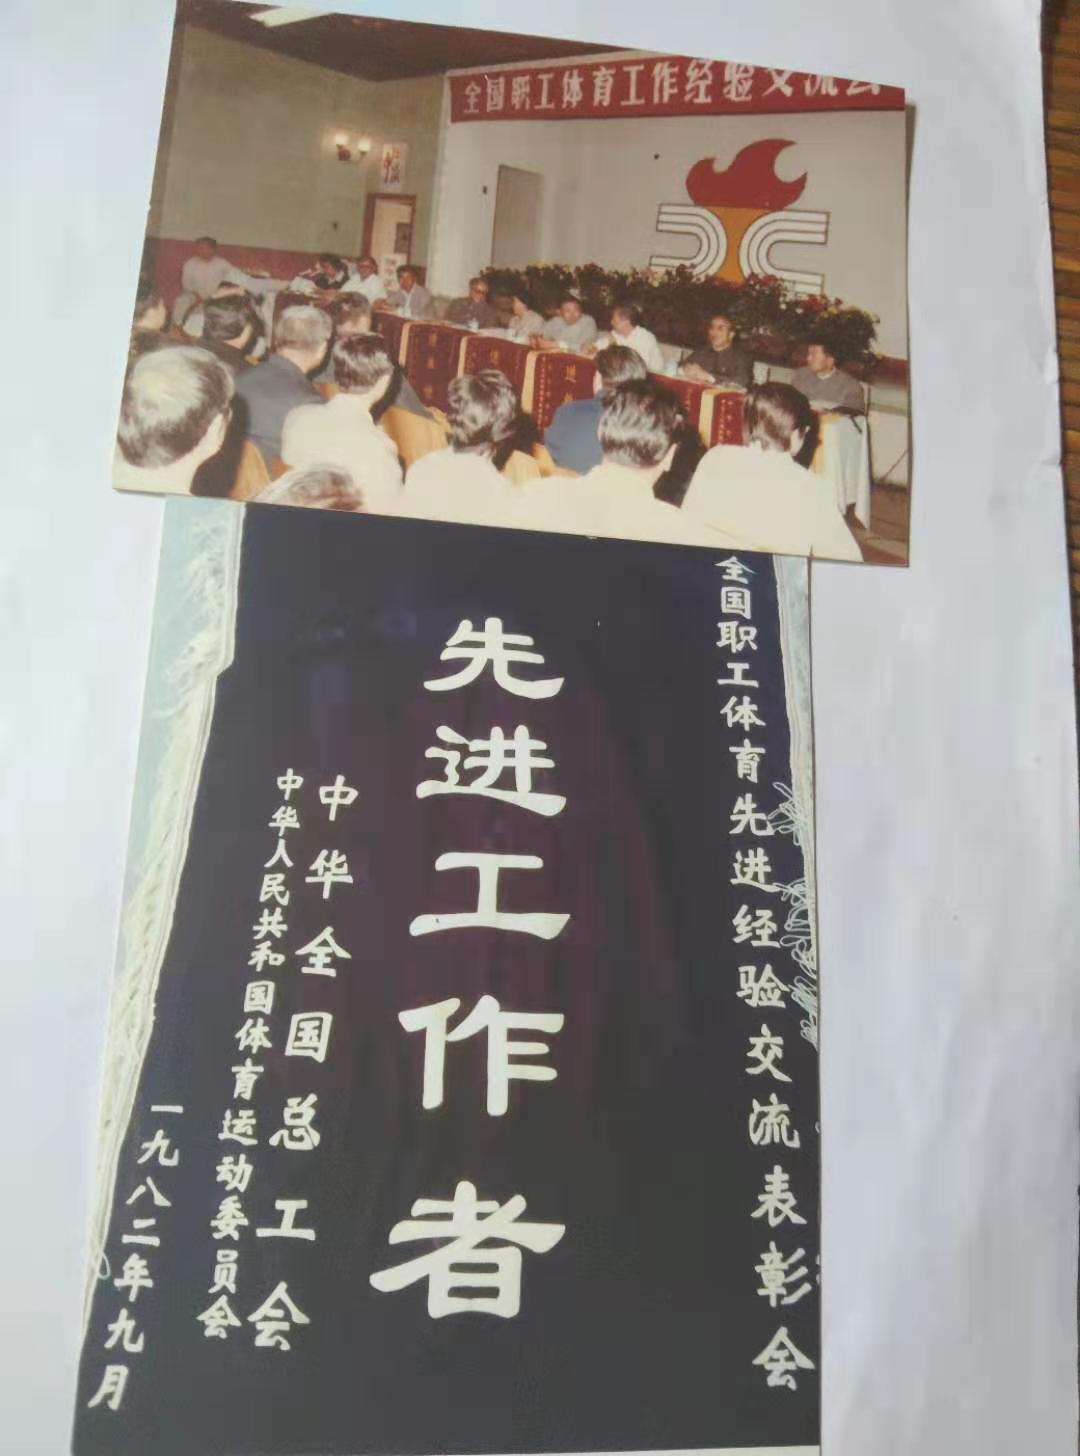 全国职工体育工作经验交流会
全国职工体育先进经验交流表彰会
先进工作者
中华全国总工会
中华人民共和国体育运动委员会
一九八二年九月